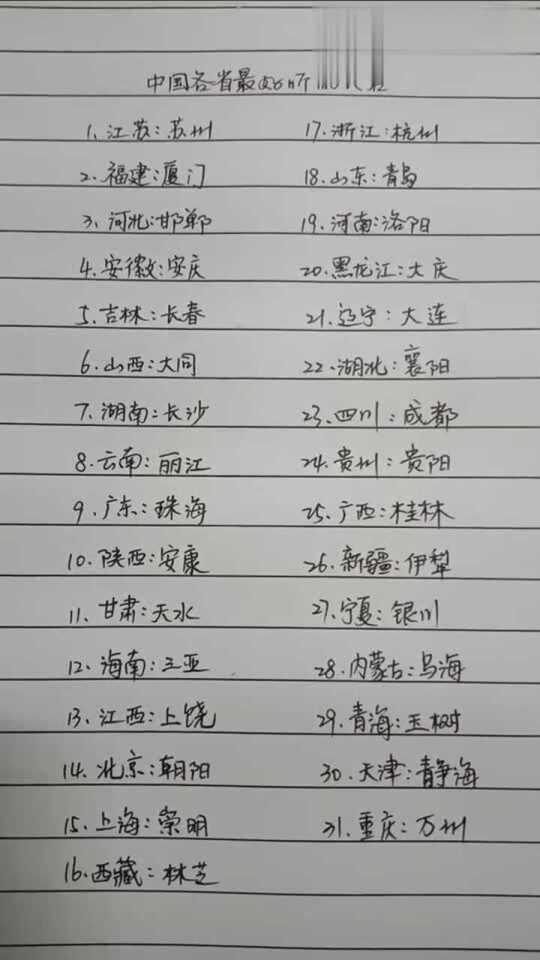 中国各省最
1、江苏:苏州
2、福建:厦门
3、河北:邯郸
4、安徽:安庆
5、吉林:长春
6、山西:大同
7、湖南:长沙
8、云南:丽江
9、广东:珠海
10、陕西:安康
11、甘肃:天水
12、海南:三亚
13、江西:上饶
14、北京:朝阳
15、上海:崇明
16、西藏:林芝
17、浙江:杭州
18、山东:青岛
19、河南:洛阳
20、黑龙江:大庆
21、辽宁:大连
22、湖北:襄阳
23、四川:成都
24、贵州:贵阳
25、广西:桂林
26、新疆:伊犁
27、宁夏:银川
28、内蒙古:乌海
29、青海:玉树
30、天津:静海
31、重庆:万州